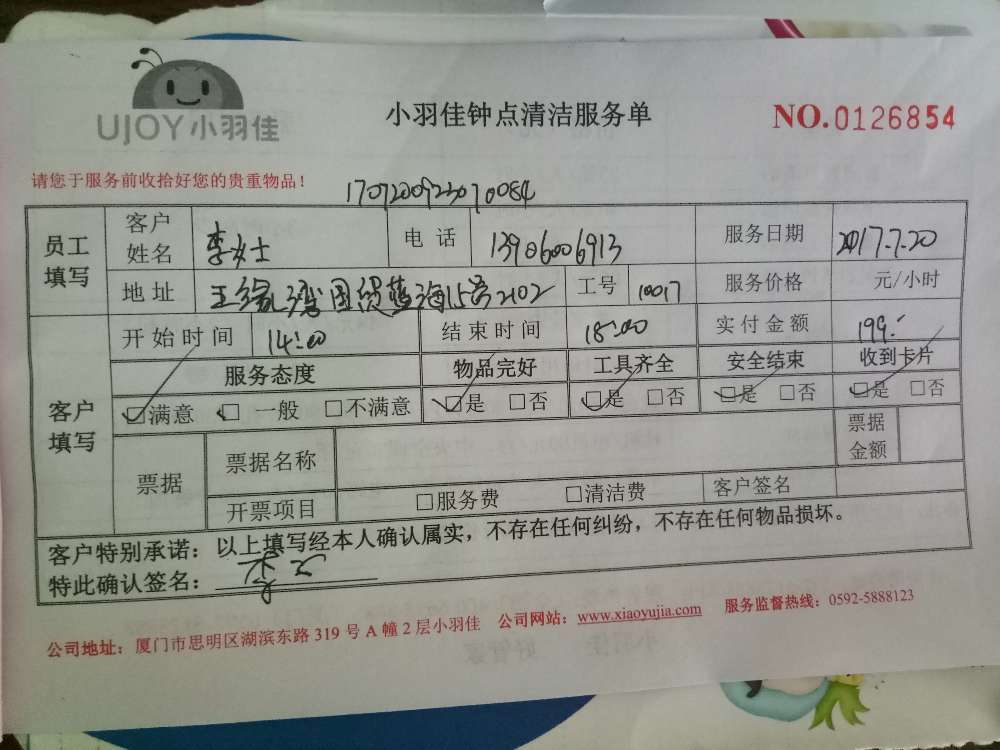 UJOY小羽佳
小羽佳钟点清洁服务单
NO.0126854
请您于服务前收拾好您的贵重物品！
员工填写 客户姓名 李女士 电话 13906006913 服务日期 2017.7.20
地址 国贸蓝海15号2102 工号 10017 服务价格 元/小时
客户填写 开始时间 14:00 结束时间 18:00 实付金额 199.-
服务态度 物品完好 工具齐全 安全结束 收到卡片
☑满意 ☑一般 □不满意 ☑是 □否 ☑是 □否 ☑是 □否 ☑是 □否
票据 票据名称 票据金额
开票项目 □服务费 □清洁费 客户签名
客户特别承诺：以上填写经本人确认属实，不存在任何纠纷，不存在任何物品损坏。
特此确认签名：
公司地址：厦门市思明区湖滨东路 319 号 A 幢 2 层小羽佳 公司网站：www.xiaoyujia.com 服务监督热线：0592-5888123